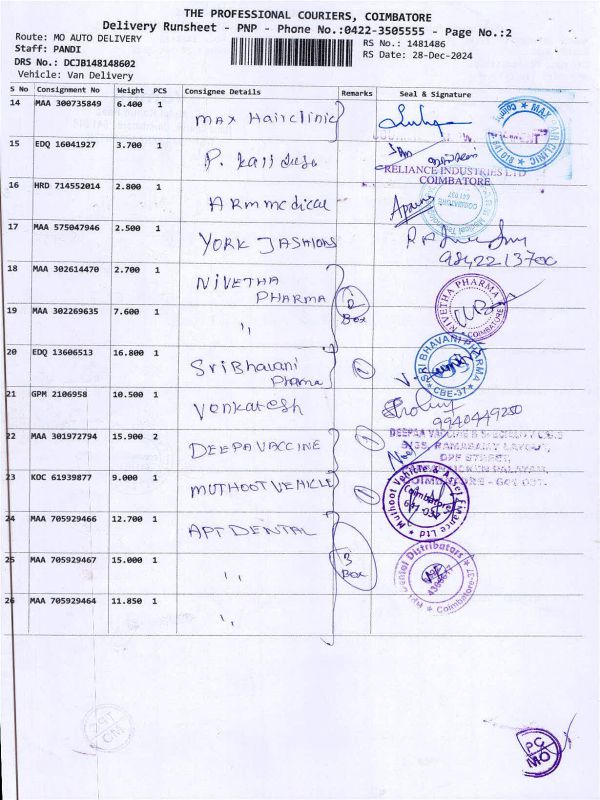 THE PROFESSIONAL COURIERS, COIMBATORE
Delivery Runsheet - PNP - Phone No.:0422-3505555 - Page No.:2
Route: MO AUTO DELIVERY
RS No.: 1481486
Staff: PANDI
RS Date: 28-Dec-2024
DRS No.: DCJB148148602
Vehicle: Van Delivery
S No Consignment No Weight PCS Consignee Details Remarks Seal & Signature
14 MAA 300735849 6.400 1 MAX Hairclinic
MAX HAIR CLINIC
15 EDQ 16041927 3.700 1 P.
RELIANCE INDUSTRIES LTD
COIMBATORE
16 HRD 714552014 2.800 1 ARM medical
17 MAA 575047946 2.500 1 YORK FASHIONS
18 MAA 302614470 2.700 1 NIVETHA PHARMA
NIVETHA PHARMA * COIMBATORE
19 MAA 302269635 7.600 1 ,, 2 Box
20 EDQ 13606513 16.800 1 Sri Bhavani Pharma 1
SRI BHAVANI PHARMA * CBE-37 *
21 GPM 2106958 10.500 1 Venkatesh
9940449250
22 MAA 301972794 15.900 2 DEEPA VACCINE 1
RAMASAMY LAYOUT,
COIMBATORE - 641 037.
23 KOC 61939877 9.000 1 MUTHOOT VEHICLE 1
Muthoot Vehicle & Asset Finance Ltd
Coimbatore
641 037
24 MAA 705929466 12.700 1 APT DENTAL
25 MAA 705929467 15.000 1 ,, 3 Box
Dental Distributors * Coimbatore
26 MAA 705929464 11.850 1 ,,
PC
MO